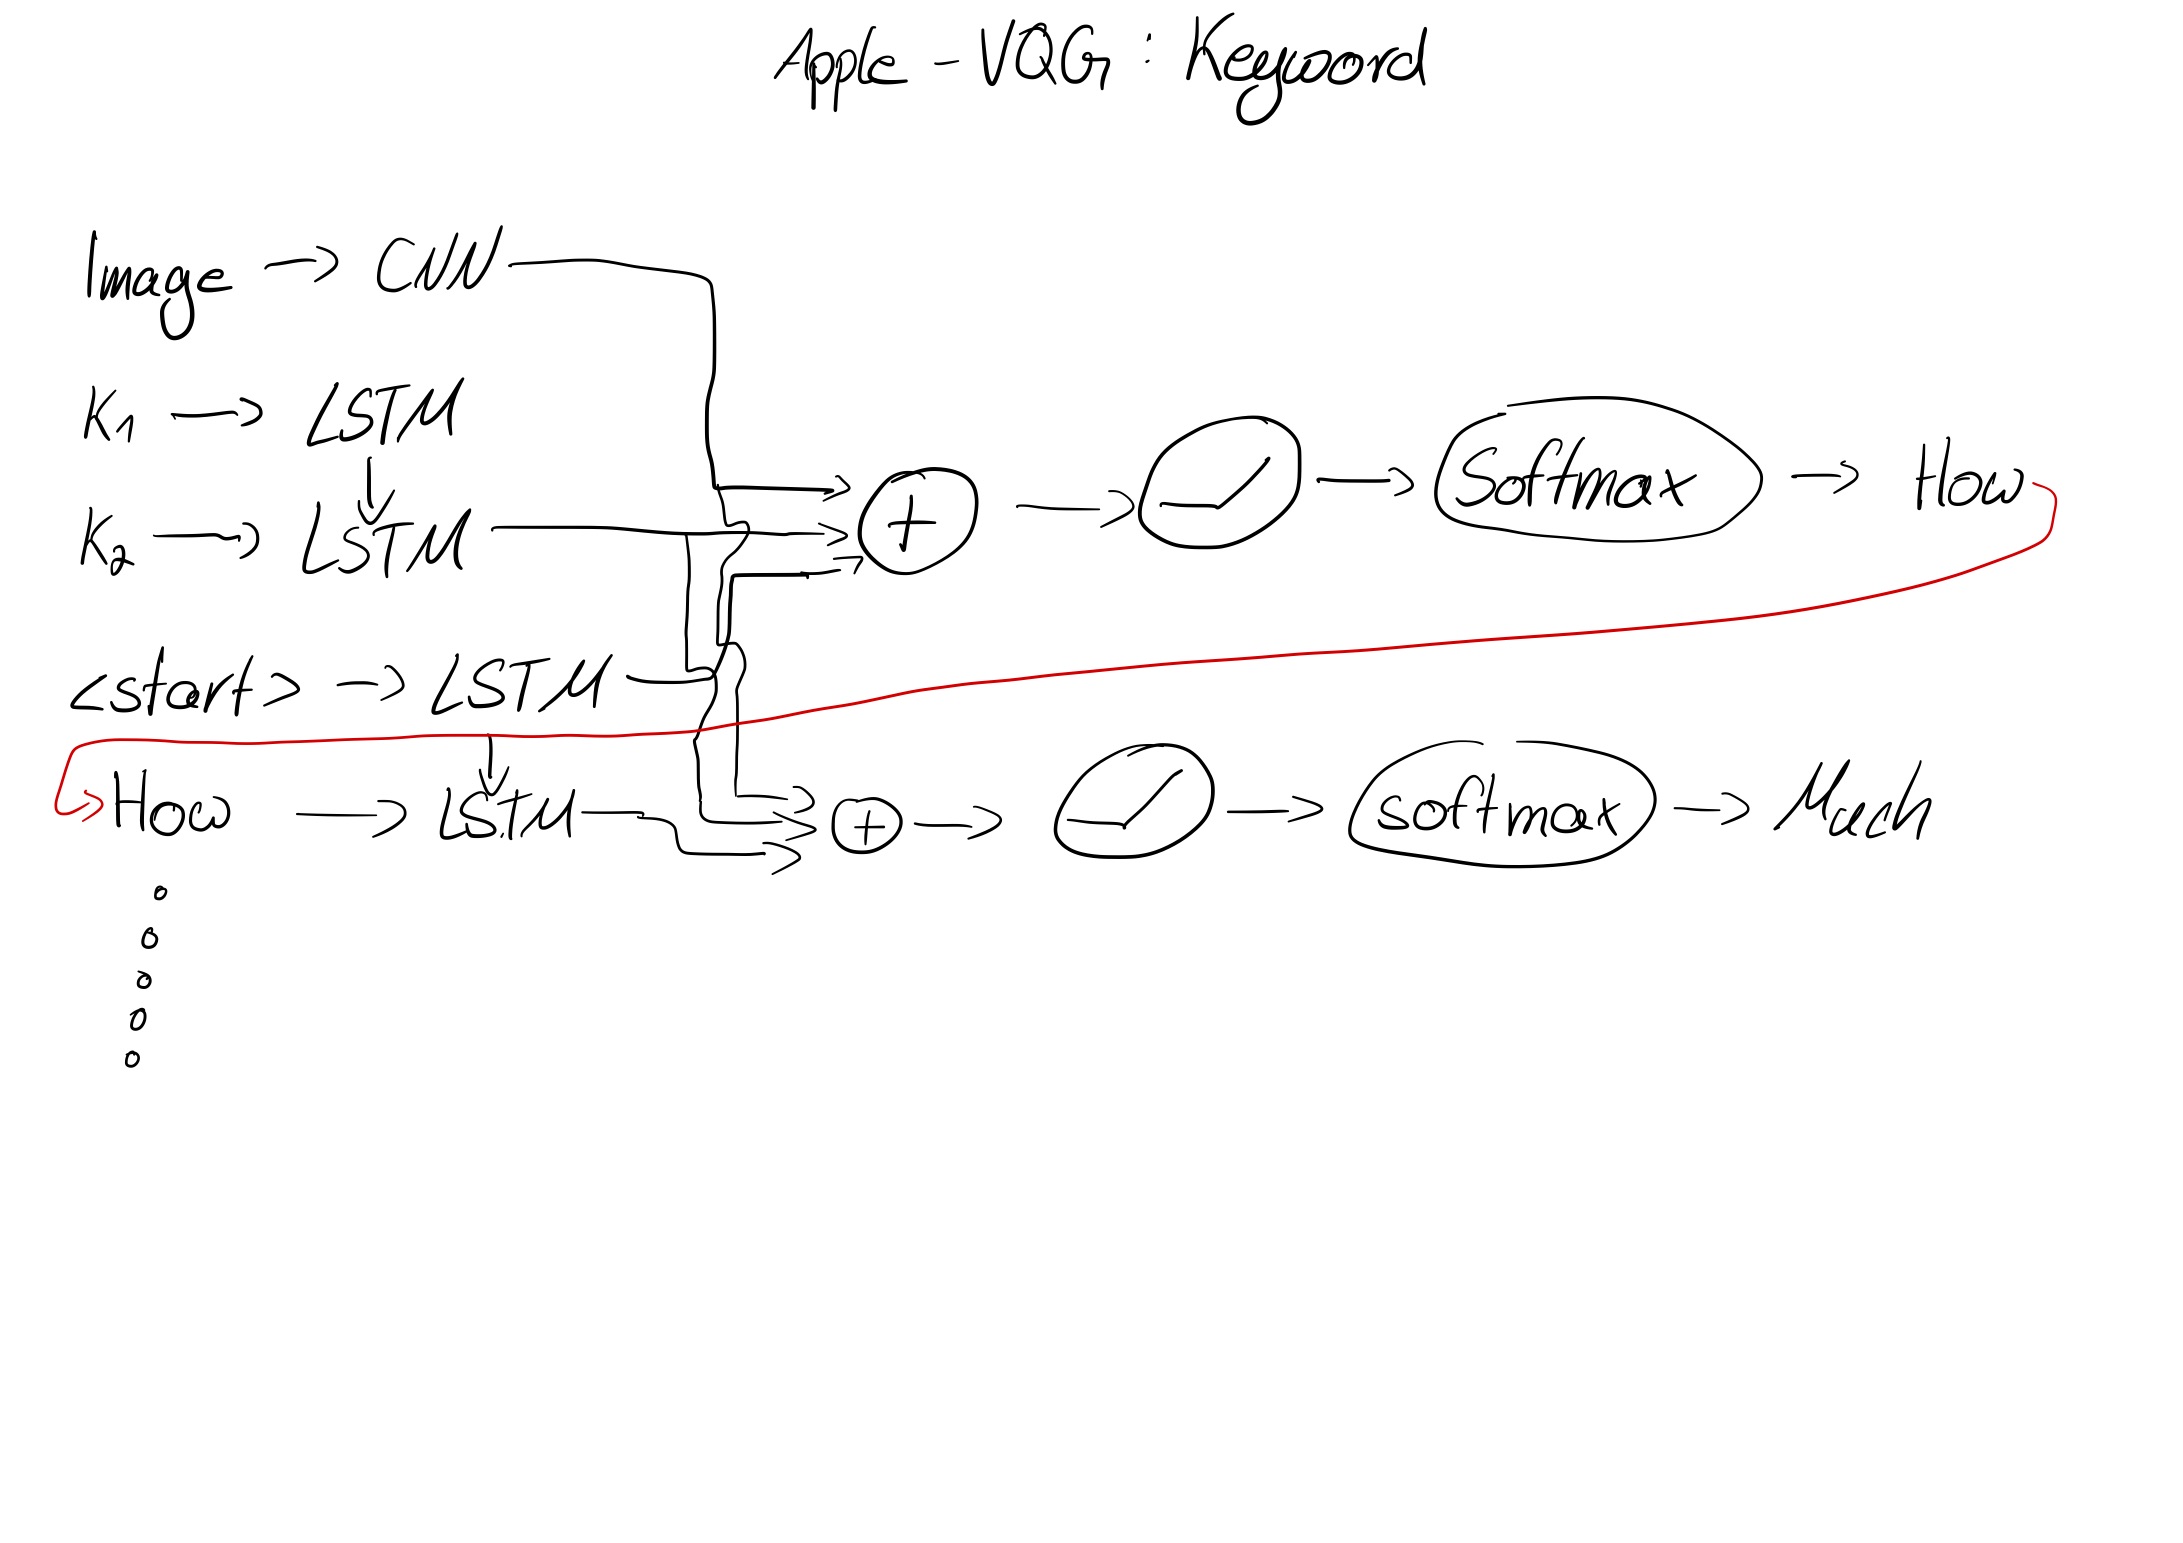 Apple - VQG : Keyword
Image → CNN
K1 → LSTM
K2 → LSTM
+ → Softmax → How
<start> → LSTM
How → LSTM + → softmax → Much